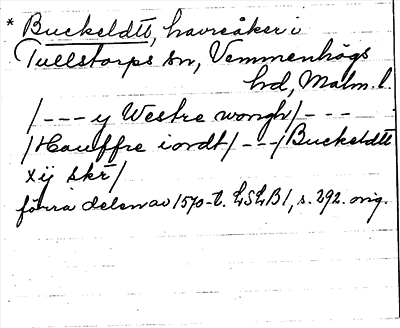 * Buckeldtt, havreåker i
Tullstorps sn, Vemmenhögs
hd, Malm. l.
/ - - - y Westre wongh / - - -
/ Hauffre iordt / - - - / Buckeldtt
xij skr /
förra delen av 1570-t. LSLB 1, s. 292. orig.